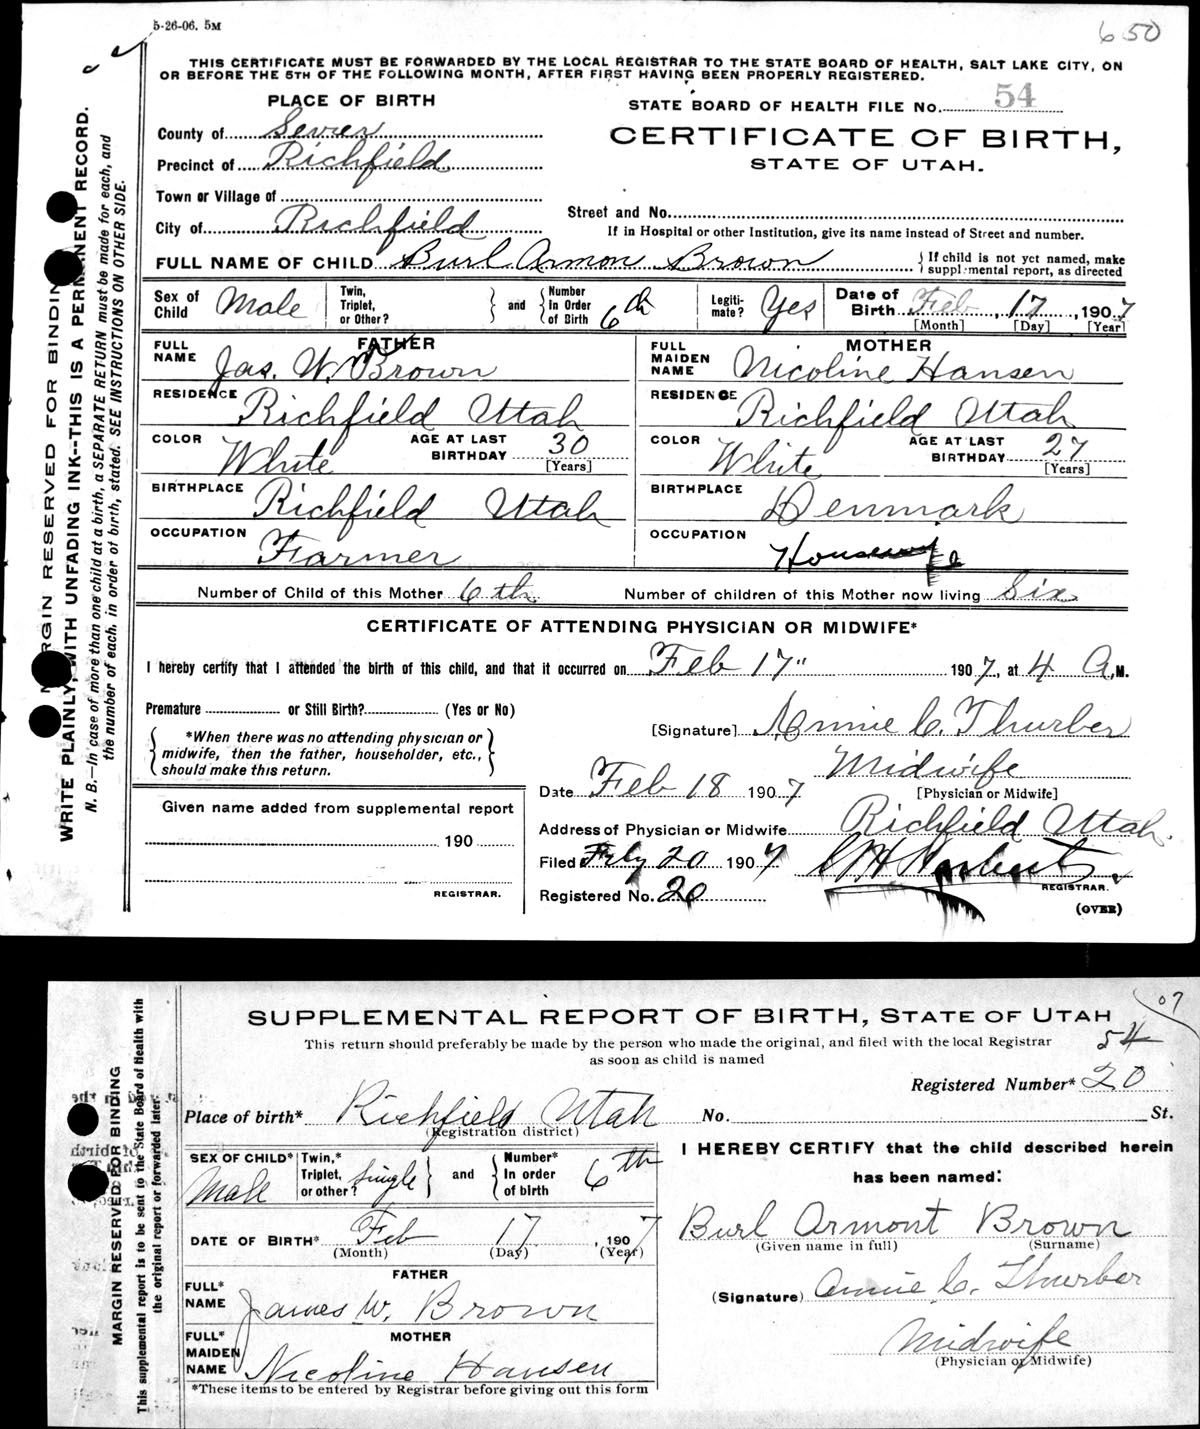 5-26-06. 5M
650
THIS CERTIFICATE MUST BE FORWARDED BY THE LOCAL REGISTRAR TO THE STATE BOARD OF HEALTH, SALT LAKE CITY, ON
OR BEFORE THE 5TH OF THE FOLLOWING MONTH, AFTER FIRST HAVING BEEN PROPERLY REGISTERED.
PLACE OF BIRTH
STATE BOARD OF HEALTH FILE No. 54
County of Sevier
CERTIFICATE OF BIRTH,
Precinct of Richfield
STATE OF UTAH.
Town or Village of
Street and No.
City of Richfield
If in Hospital or other Institution, give its name instead of Street and number.
FULL NAME OF CHILD Burl Armon Brown { If child is not yet named, make
supplemental report, as directed
Sex of Child Male Twin, Triplet, or Other? and Number In Order of Birth 6th Legitimate? Yes Date of Birth Feb, 17, 1907
[Month] [Day] [Year]
FATHER
FULL NAME Jas. W. Brown
RESIDENCE Richfield Utah
COLOR White AGE AT LAST BIRTHDAY 30
[Years]
BIRTHPLACE Richfield Utah
OCCUPATION Farmer
MOTHER
FULL MAIDEN NAME Nicoline Hansen
RESIDENCE Richfield Utah
COLOR White AGE AT LAST BIRTHDAY 27
[Years]
BIRTHPLACE Denmark
OCCUPATION Housewife
Number of Child of this Mother 6th Number of children of this Mother now living Six
CERTIFICATE OF ATTENDING PHYSICIAN OR MIDWIFE*
I hereby certify that I attended the birth of this child, and that it occurred on Feb 17" 1907, at 4 A.M.
Premature or Still Birth? (Yes or No)
[Signature] Annie C. Thurber
*When there was no attending physician or
midwife, then the father, householder, etc.,
should make this return.
Midwife
Date Feb 18 1907 [Physician or Midwife]
Given name added from supplemental report
190
REGISTRAR.
Address of Physician or Midwife Richfield Utah.
Filed Feby 20 1907
REGISTRAR.
Registered No. 20
(OVER)
MARGIN RESERVED FOR BINDING
WRITE PLAINLY, WITH UNFADING INK--THIS IS A PERMANENT RECORD.
N. B.—In case of more than one child at a birth, a SEPARATE RETURN must be made for each, and
the number of each, in order of birth, stated. SEE INSTRUCTIONS ON OTHER SIDE.
07
SUPPLEMENTAL REPORT OF BIRTH, STATE OF UTAH
This return should preferably be made by the person who made the original, and filed with the local Registrar
as soon as child is named
54
Registered Number* 20
Place of birth* Richfield Utah No. St.
(Registration district)
SEX OF CHILD* Male Twin,* Triplet, or other? Single and Number* In order of birth 6th
DATE OF BIRTH* Feb 17, 1907
(Month) (Day) (Year)
FATHER
FULL* NAME James W. Brown
MOTHER
FULL* MAIDEN NAME Nicoline Hansen
*These items to be entered by Registrar before giving out this form
I HEREBY CERTIFY that the child described herein
has been named:
Burl Armont Brown
(Given name in full) (Surname)
(Signature) Annie C. Thurber
Midwife
(Physician or Midwife)
MARGIN RESERVED FOR BINDING
This supplemental report is to be sent to the State Board of Health with
the original report or forwarded later.